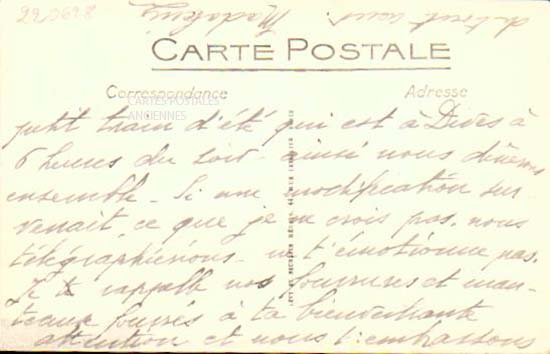 220698
CARTE POSTALE
Correspondance
Adresse
CARTES POSTALES
ANCIENNES
petit train d'été qui est à Dives à
6 heures du soir - ainsi nous dînerons
ensemble - Si une modification sur
venait, ce que je ne crois pas, nous
télégraphierions - ne t'émotionne pas.
Je te rappelle nos fourrures et man-
teaux fourrés à ta bienveillante
attention et nous t'embrassons
de tout cœur.
Madeleine